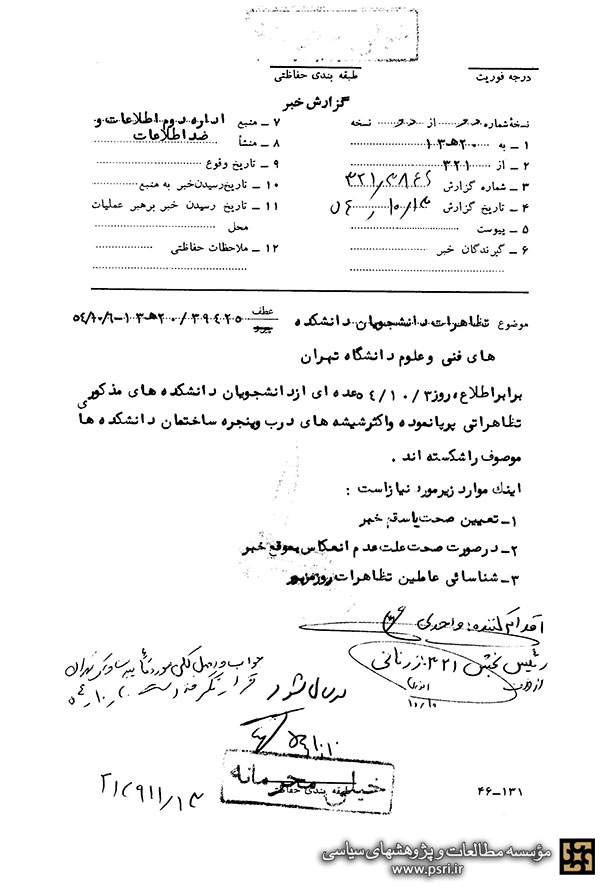 درجه فوریت
طبقه بندی حفاظتی
گزارش خبر
نسخهٔ شماره از نسخه
۱ ـ به ۲۰۰هـ۱۳
۲ ـ از ۳۲۱
۳ ـ شماره گزارش
۴ ـ تاریخ گزارش
۵ ـ پیوست
۶ ـ گیرندگان خبر
۷ ـ منبع اداره دوم اطلاعات و
ضد اطلاعات
۸ ـ منشأ
۹ ـ تاریخ وقوع
۱۰ ـ تاریخ رسیدن خبر به منبع
۱۱ ـ تاریخ رسیدن خبر برهبر عملیات
محل
۱۲ ـ ملاحظات حفاظتی
موضوع تظاهرات دانشجویان دانشکده عطف پیرو ۳۹۴۲۵/۲۰۰هـ۱۳-
های فنی و علوم دانشگاه تهران
برابر اطلاع، روز ۵۴/۱۰/۳ عده ای از دانشجویان دانشکده های مذکور
تظاهراتی برپا نموده و اکثر شیشه های درب و پنجره ساختمان دانشکده ها
موصوف را شکسته اند .
اینك موارد زیر مورد نیاز است :
۱ـ تعیین صحت یا سقم خبر
۲ـ در صورت صحت علت عدم انعکاس بموقع خبر
۳ـ شناسائی عاملین تظاهرات روز مزبور
اقدام کننده: واحدی
رئیس بخش ۳۲۱:
ارسال شود
خیلی محرمانه
طبقه بندی حفاظتی
۴۶-۱۳۱
مؤسسه مطالعات و پژوهشهای سیاسی
www.psri.ir